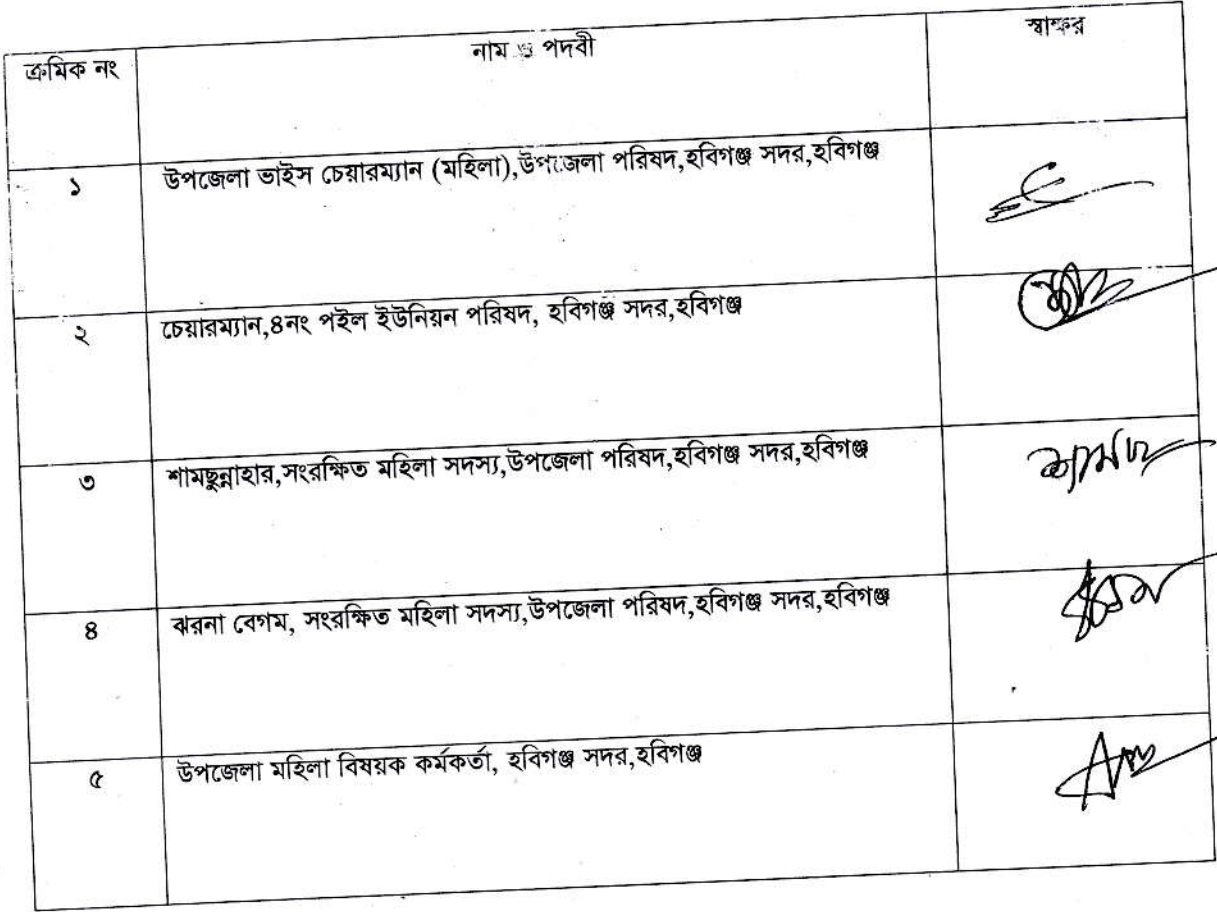 ক্রমিক নং নাম ও পদবী স্বাক্ষর
১ উপজেলা ভাইস চেয়ারম্যান (মহিলা),উপজেলা পরিষদ,হবিগঞ্জ সদর,হবিগঞ্জ
২ চেয়ারম্যান,৪নং পইল ইউনিয়ন পরিষদ, হবিগঞ্জ সদর,হবিগঞ্জ
৩ শামছুন্নাহার,সংরক্ষিত মহিলা সদস্য,উপজেলা পরিষদ,হবিগঞ্জ সদর,হবিগঞ্জ
৪ ঝরনা বেগম, সংরক্ষিত মহিলা সদস্য,উপজেলা পরিষদ,হবিগঞ্জ সদর,হবিগঞ্জ
৫ উপজেলা মহিলা বিষয়ক কর্মকর্তা, হবিগঞ্জ সদর,হবিগঞ্জ